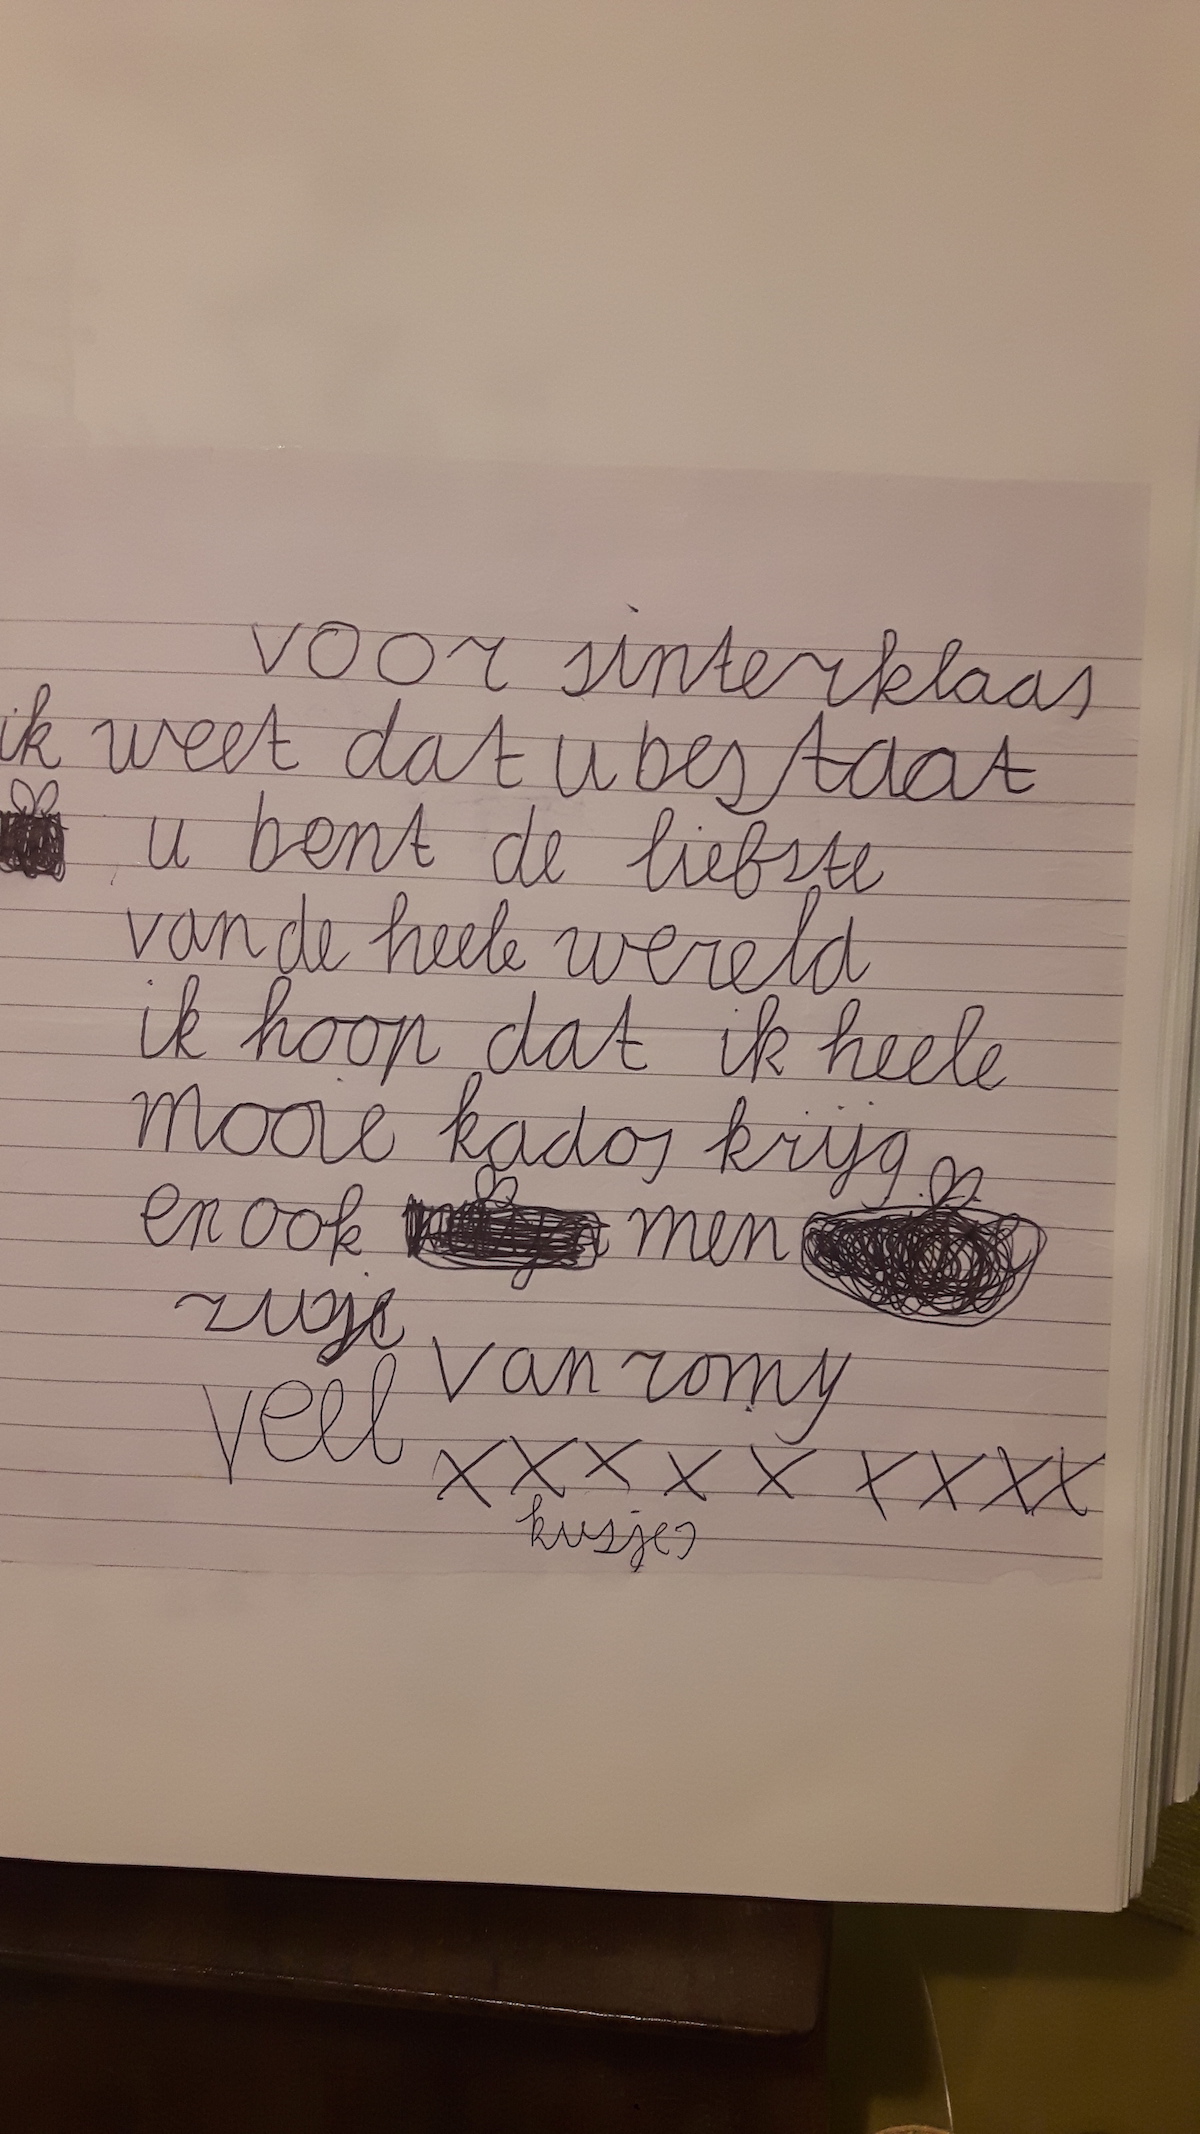 voor sinterklaas
ik weet dat u bestaat
u bent de liefste
van de heele wereld
ik hoop dat ik heele
mooie kados krijg
en ook men
zusje
van romy
veel xxx x x x x x x
kusjes